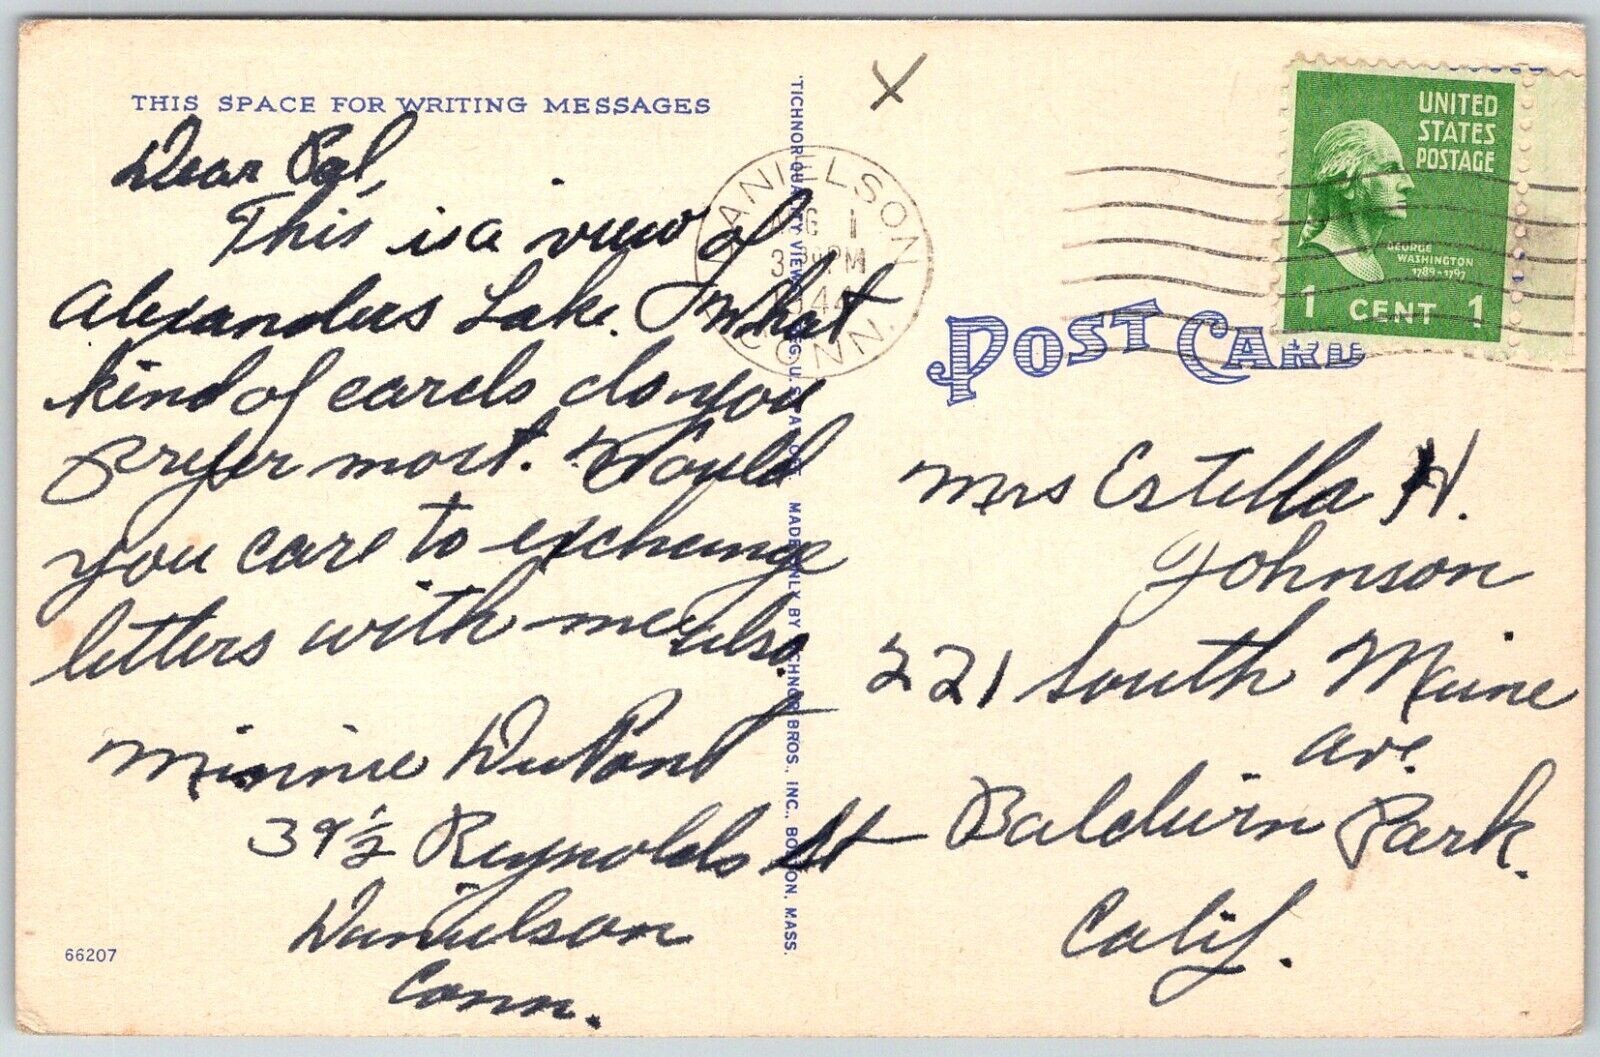 THIS SPACE FOR WRITING MESSAGES
Dear Pal,
This is a view of
Alexanders Lake. In what
kind of cards do you
prefer most. Would
you care to exchange
letters with me also.
Minnie DuPont
39 1/2 Reynolds St
Danielson
Conn.
66207
TICHNOR QUALITY VIEWS REG. U.S. PAT. OFF. MADE ONLY BY TICHNOR BROS., INC., BOSTON, MASS.
X
DANIELSON
AUG 1
PM
1944
CONN.
UNITED
STATES
POSTAGE
GEORGE
WASHINGTON
1789-1797
1 CENT 1
POST CARD
Mrs Estella H.
Johnson
221 South Maine
Ave.
Baldwin Park.
Calif.